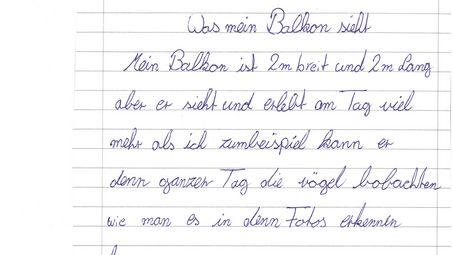 Was mein Balkon sieht
Mein Balkon ist 2m breit und 2m Lang
aber er sieht und erlebt am Tag viel
mehr als ich zumbeispiel kann er
denn ganzen Tag die vögel bobachten
wie man es in denn Fotos erkennen